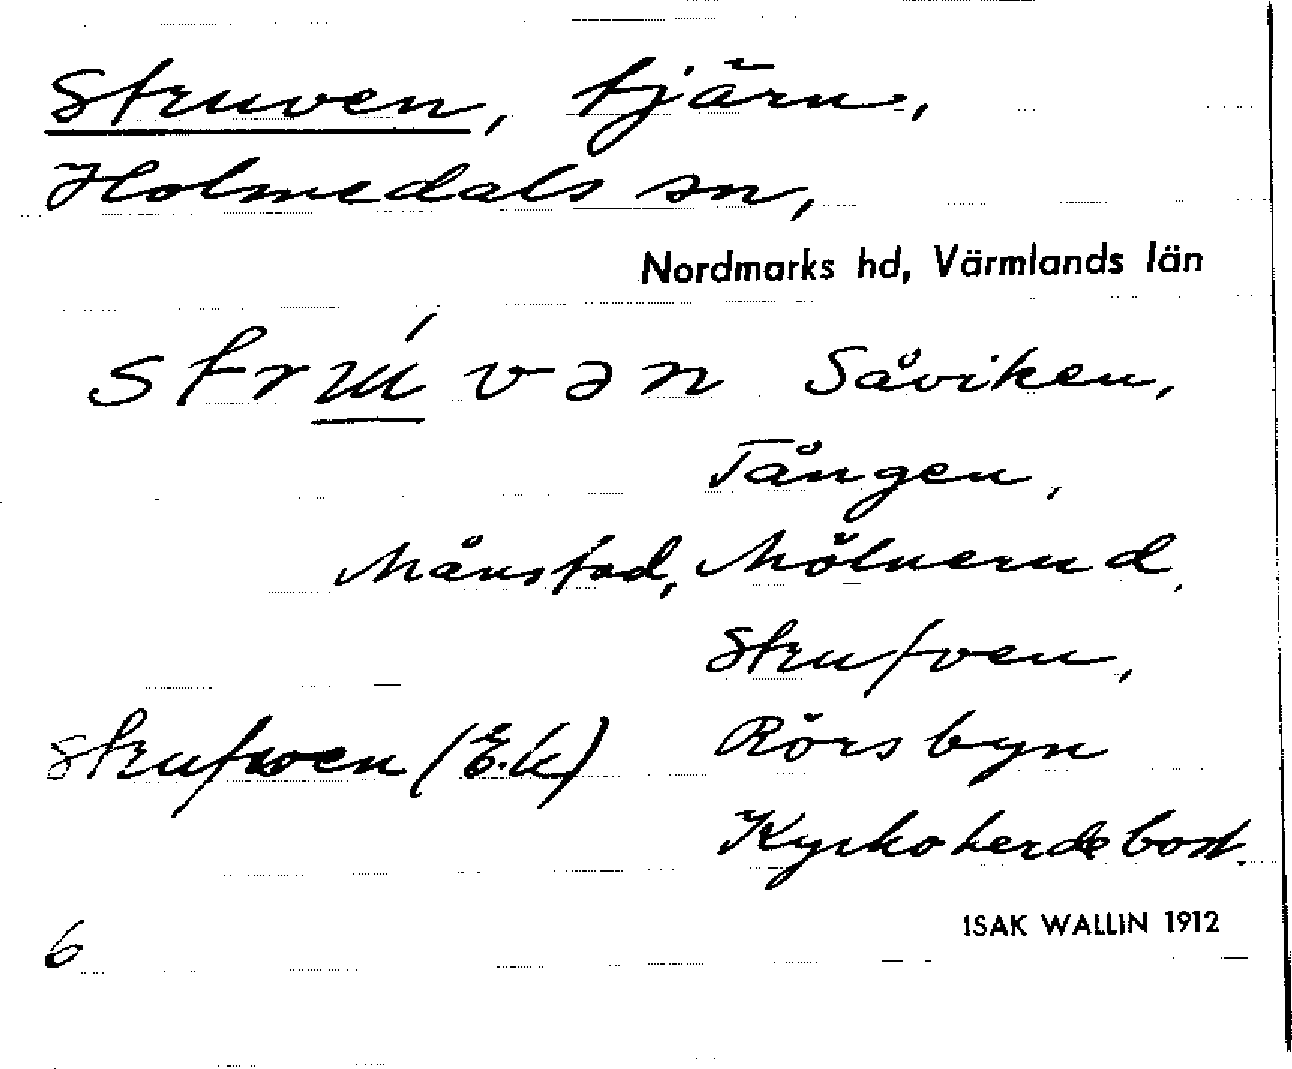 Struven, tjärn,
Holmedals sn,
Nordmarks hd, Värmlands län
strúvən Såviken,
Tången,
Månstad, Mölnerud,
Strufven,
Strufwen (E.k) Rörsbyn
Kyrkoherdebost.
ISAK WALLIN 1912
6